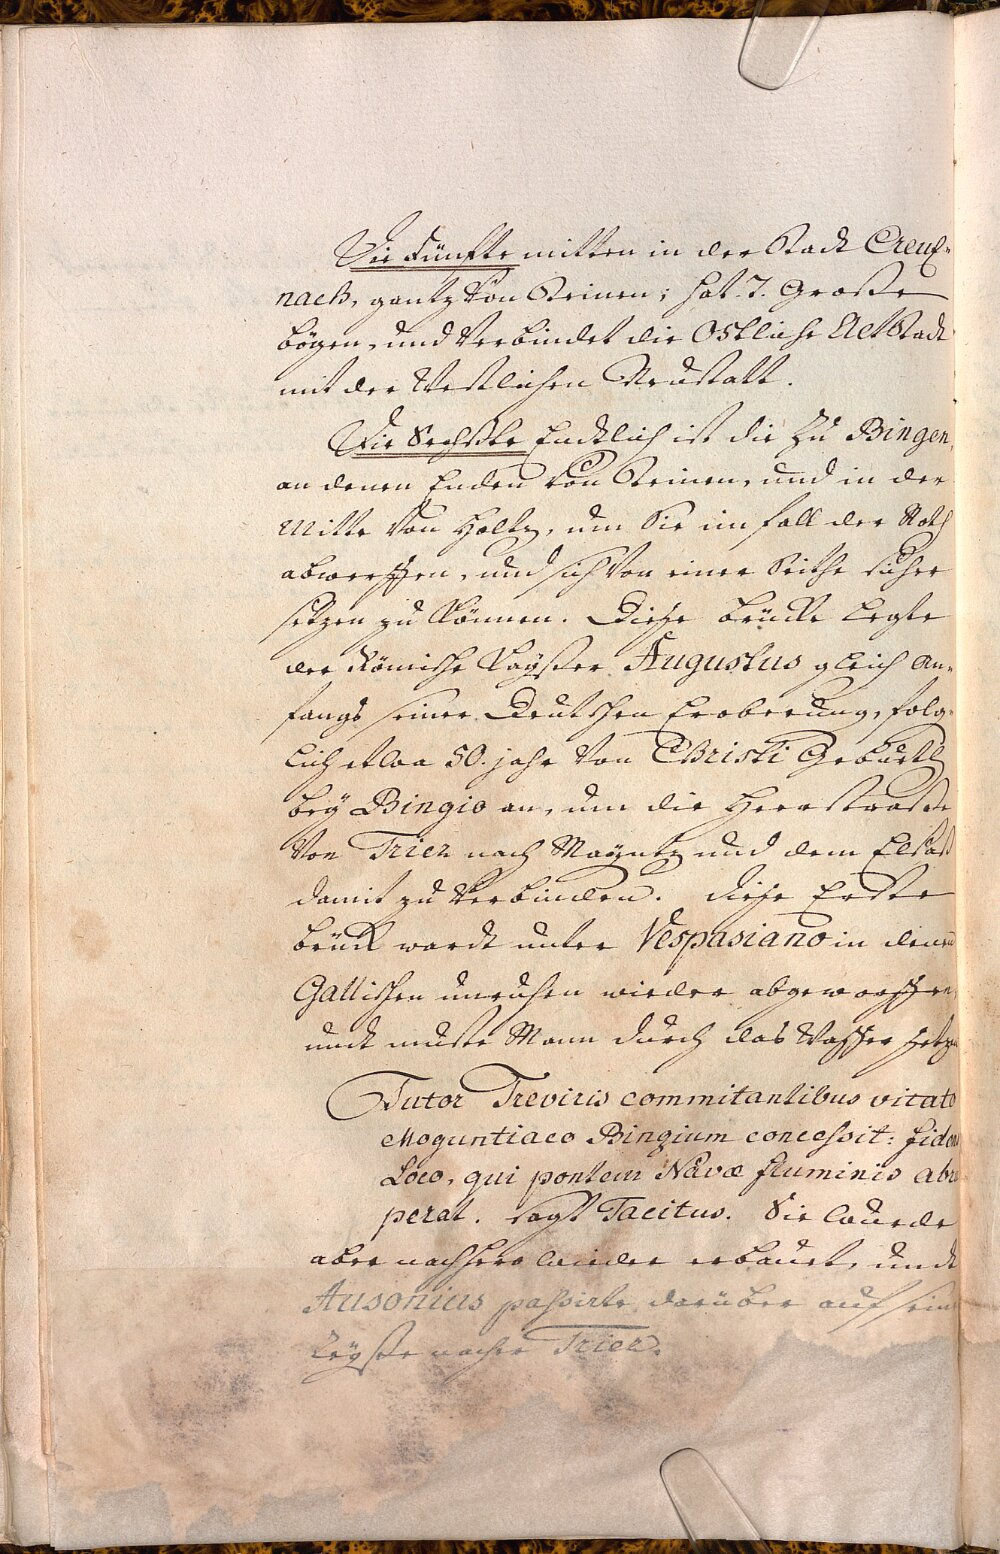 Die Fünffte mitten in der Stadt Creutz-
nach, gantz Von Steinen; hat 7. Große
bögen, und Verbindet die Ostliche AltStadt
mit der Westlichen Neustatt.
Die Sechste Endtlich ist die Zu Bingen,
an denen Enden Von Steinen, und in der
Mitte Von Holtz, um Sie im fall der Noth
abwerffen, und sich Von einer Seithe sicher
setzen zu Können. Diese brücke Legte
der Römische Kayßer Augustus gleich An-
fangs seiner Deutschen Eroberung, folg-
lich etwa 50. jahr Von Christi Geburth
bey Bingio an, um die Heerstraße
Von Trier nach Mayntz und dem Elsaß
damit zu Verbinden. diese Erste
brück wardt unter Vespasiano in denen
Gallischen unruhen wieder abgeworffen,
undt muste Mann durch das Wasser setzen
Tutor Treviris commitantibus vitato
Moguntiaco Bingium concessit: fidens
Loco, qui pontem Navæ fluminis abru
perat. sagt Tacitus. Sie wurde
aber nachhero wieder erbauet, undt
Ausonius passirte darüber auf seiner
Reyße nacher Trier.